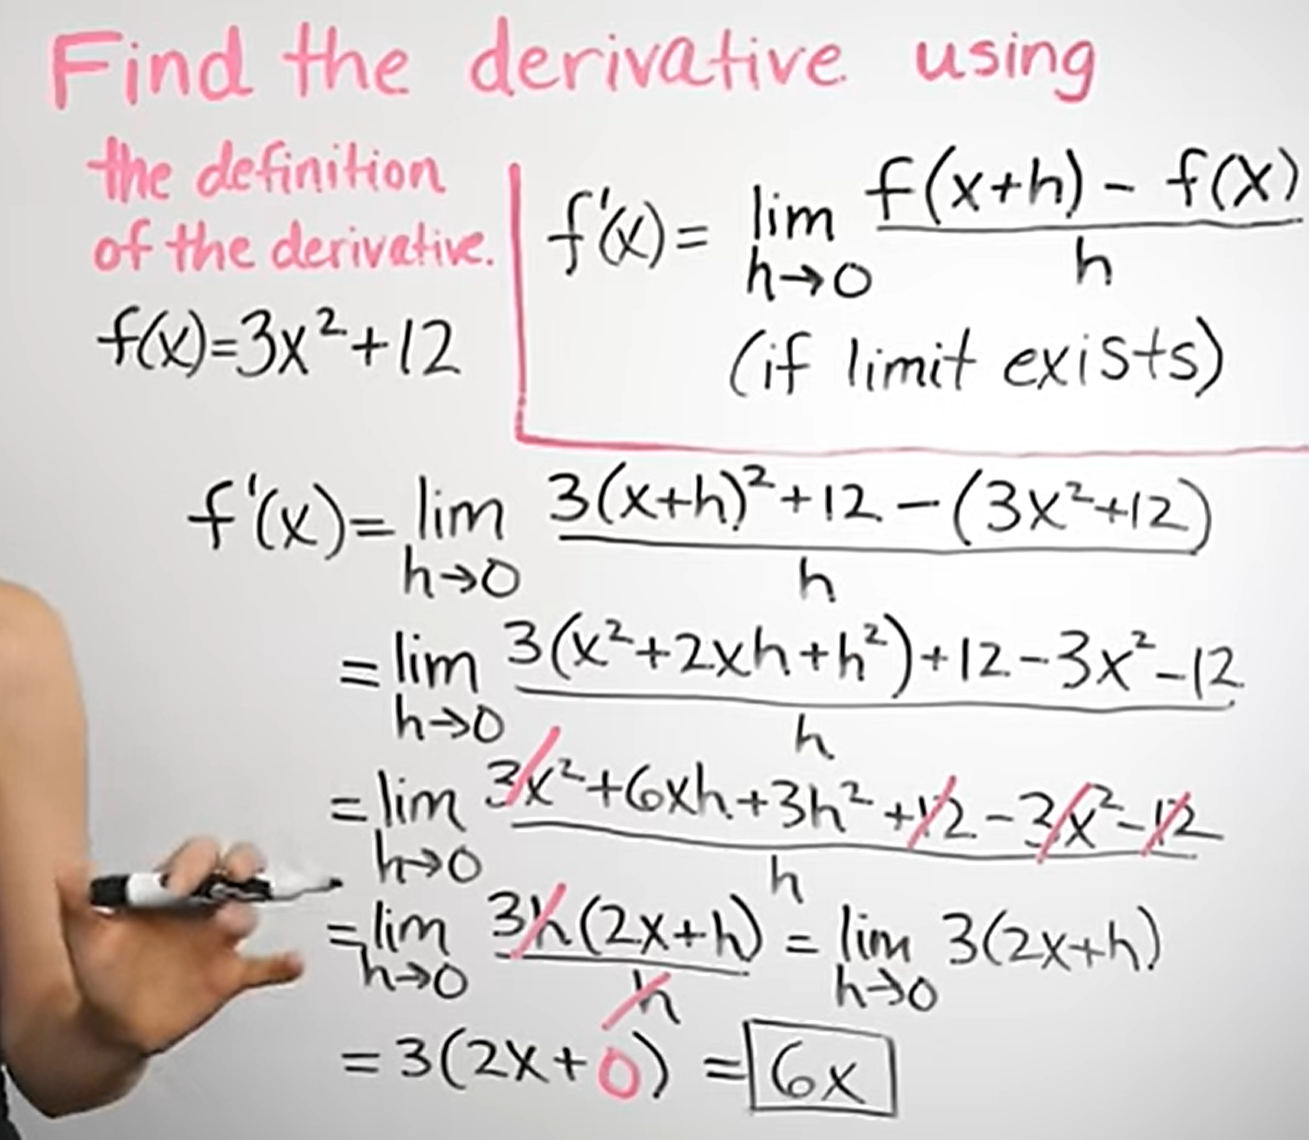 Find the derivative using
the definition
of the derivative.
f(x)=3x²+12
f'(x)= lim h→0 (f(x+h) - f(x))/h
(if limit exists)
f'(x)= lim h→0 (3(x+h)²+12-(3x²+12))/h
= lim h→0 (3(x²+2xh+h²)+12-3x²-12)/h
= lim h→0 (3x²+6xh+3h²+12-3x²-12)/h
= lim h→0 (3h(2x+h))/h = lim h→0 3(2x+h)
= 3(2x+0) = 6x